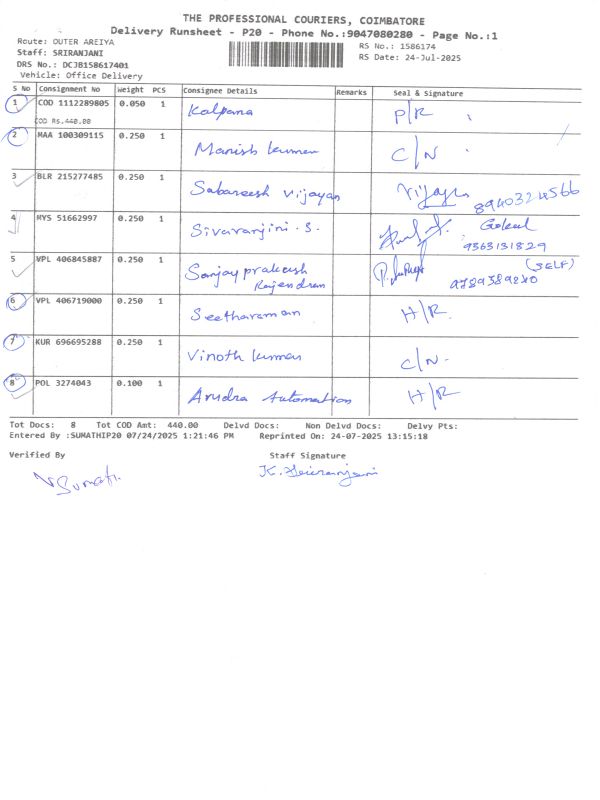 THE PROFESSIONAL COURIERS, COIMBATORE
Delivery Runsheet - P20 - Phone No.:9047080280 - Page No.:1
Route: OUTER AREIYA
RS No.: 1586174
Staff: SRIRANJANI
RS Date: 24-Jul-2025
DRS No.: DCJB158617401
Vehicle: Office Delivery
S No Consignment No Weight PCS Consignee Details Remarks Seal & Signature
1 COD 1112289805 0.050 1 Kalpana P/R
COD Rs.440.00
2 MAA 100309115 0.250 1 Manish kumar C/N
3 BLR 215277485 0.250 1 Sabareesh Vijayan Vijayan 8940324566
4 MYS 51662997 0.250 1 Sivaranjini.S. Gokul
9363131829
5 VPL 406845887 0.250 1 Sanjayprakash (SELF)
Rajendran 9789389240
6 VPL 406719000 0.250 1 Seetharaman H/R.
7 KUR 696695288 0.250 1 Vinoth kumar C/N-
8 POL 3274043 0.100 1 Arudra Automation H/R
Tot Docs: 8 Tot COD Amt: 440.00 Delvd Docs: Non Delvd Docs: Delvy Pts:
Entered By :SUMATHIP20 07/24/2025 1:21:46 PM Reprinted On: 24-07-2025 13:15:18
Verified By Staff Signature
Sumathi K. Sriranjani